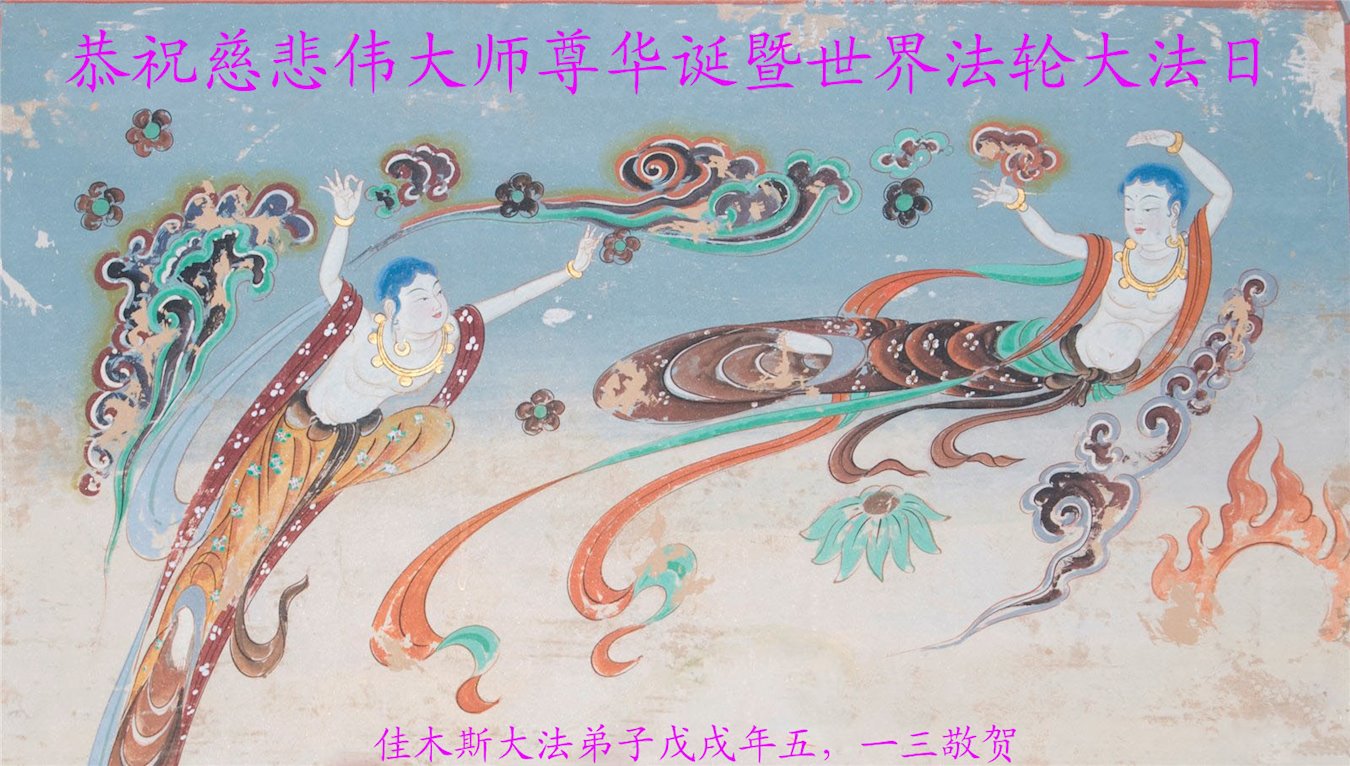 恭祝慈悲伟大师尊华诞暨世界法轮大法日
佳木斯大法弟子戊戌年五，一三敬贺